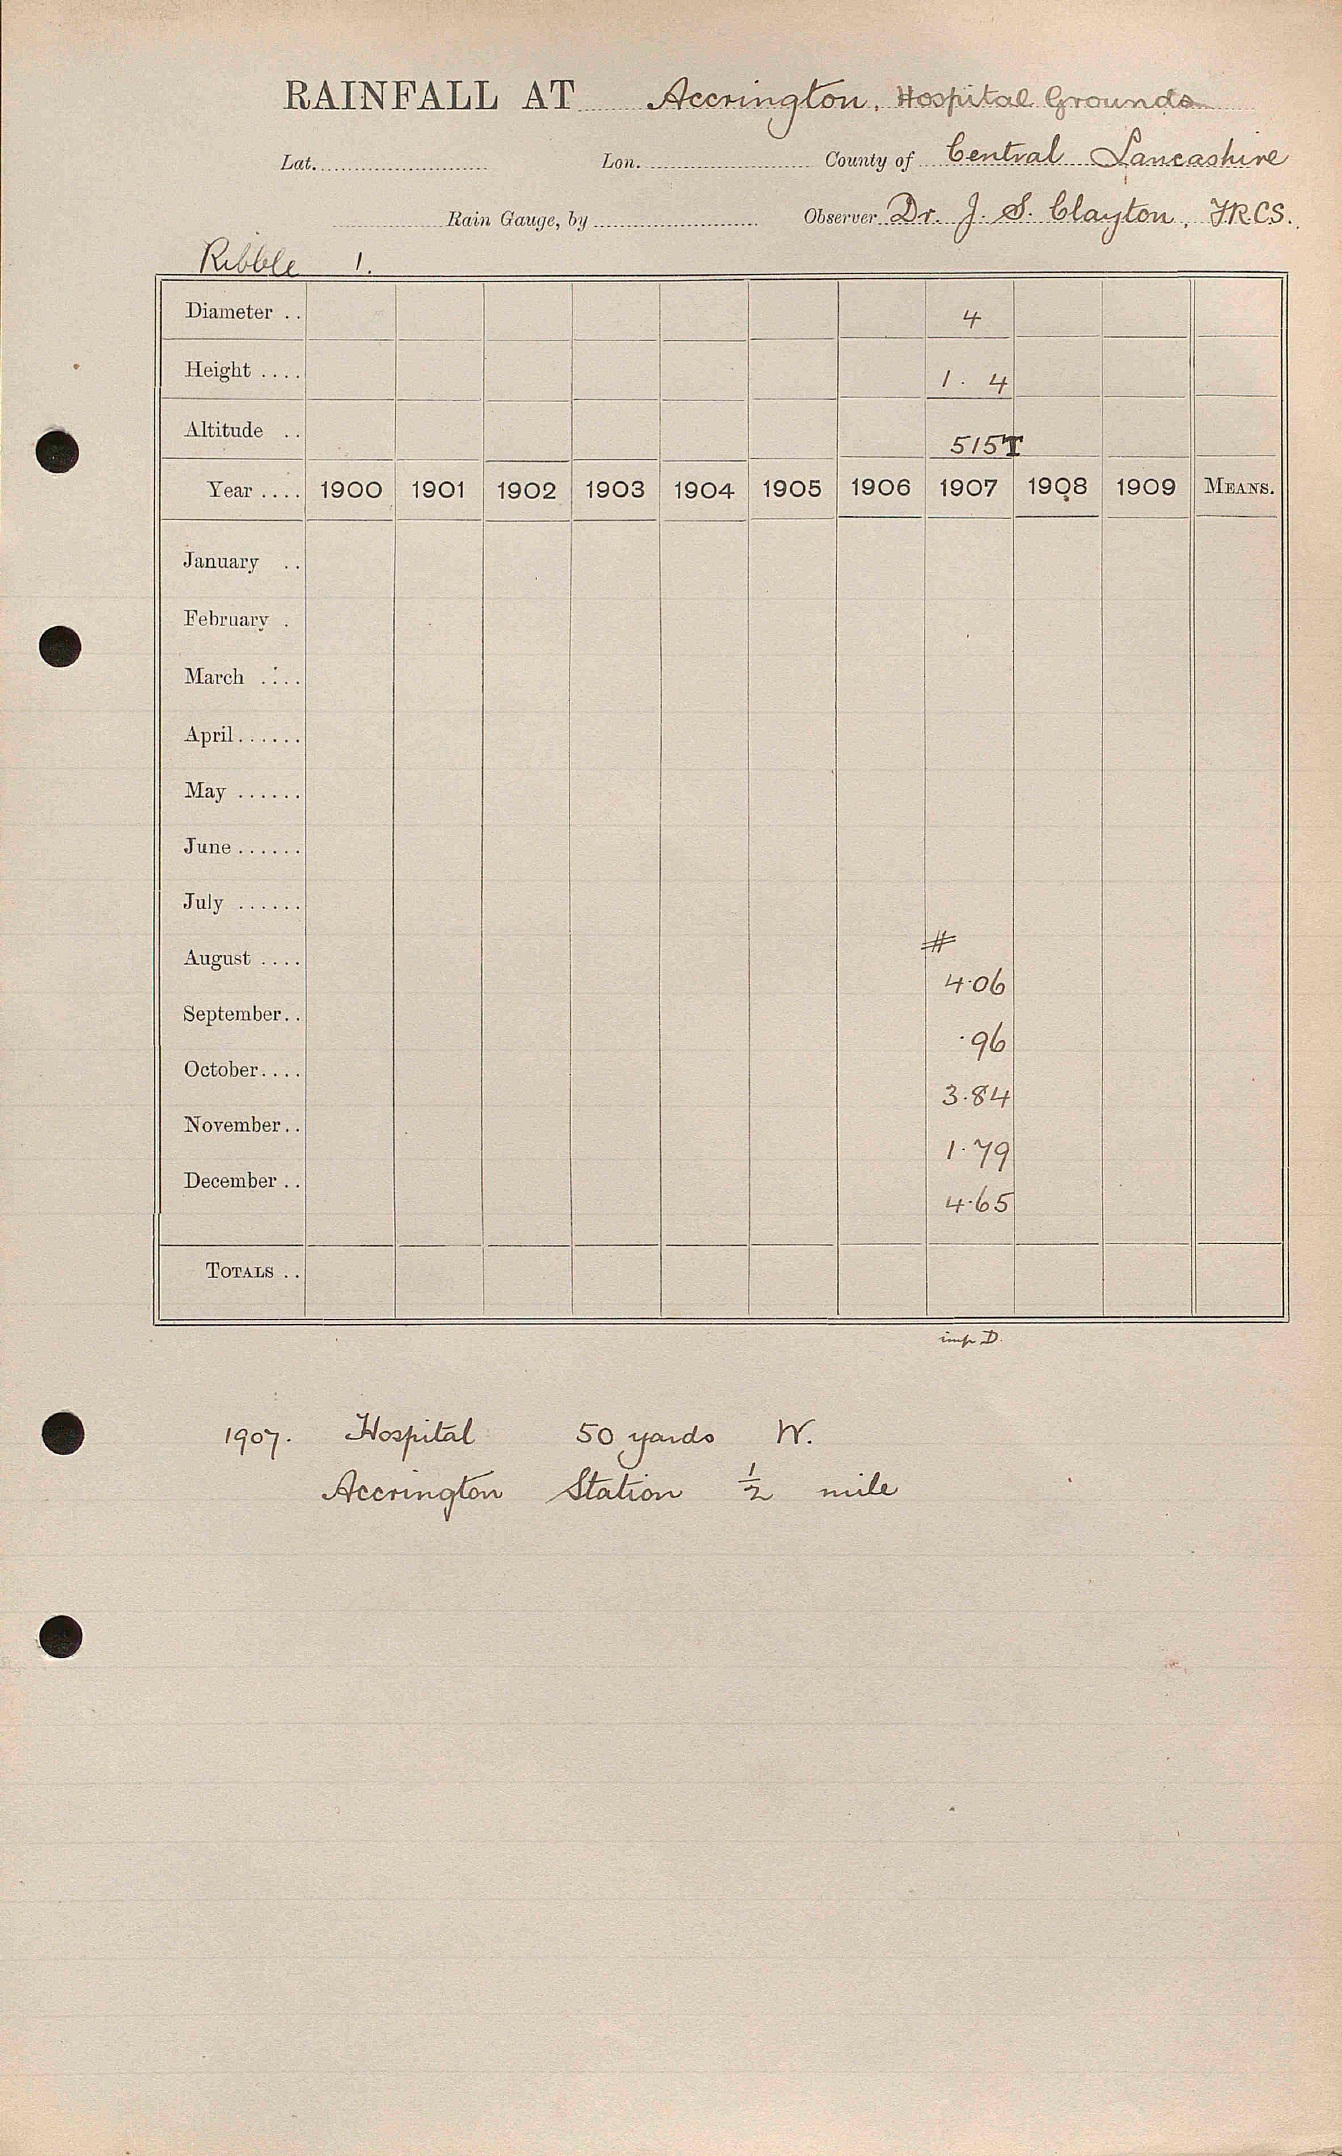 RAINFALL AT Accrington, Hospital Grounds
Lat. Lon. County of Central Lancashire
Rain Gauge, by Observer Dr. J. S. Clayton, F.R.C.S.
Ribble 1.
Diameter .. 4
Height .... 1. 4
Altitude .. 515T
Year .... 1900 1901 1902 1903 1904 1905 1906 1907 1908 1909 MEANS.
January ..
February .
March ....
April......
May ......
June ......
July ......
#
August .... 4.06
September.. .96
October.... 3.84
November.. 1.79
December .. 4.65
TOTALS ..
imp D.
1907. Hospital 50 yards W.
Accrington Station ½ mile